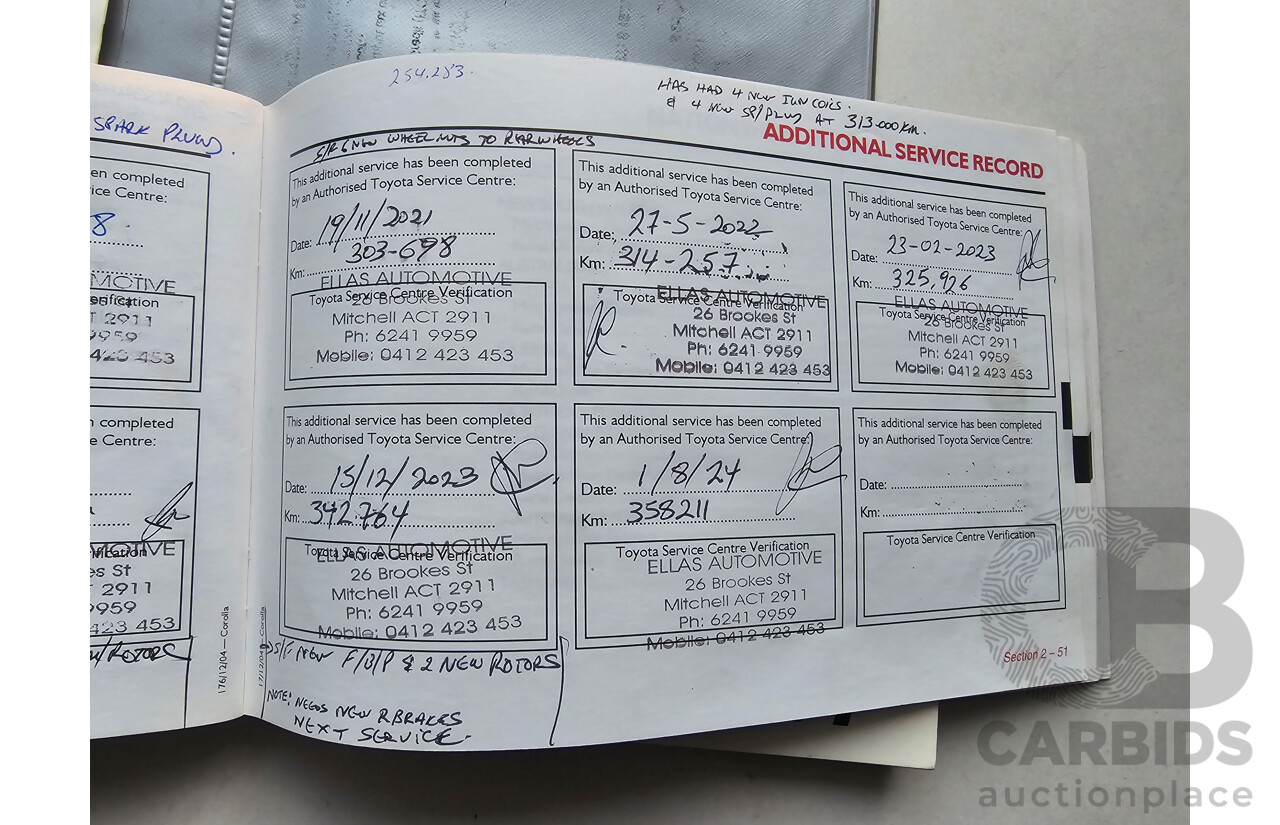 SPARK PLUGS.
en completed
ice Centre:
8.
MOTIVE
erification
T 2911
9959
423 453
n completed
e Centre:
MOTIVE
rification
es St
2911
9959
423 453
ROTORS
176/12/04 — Corolla
254.283.
HAS HAD 4 NEW IGN COILS.
& 4 NEW SP/PLUGS AT 313.000KM.
ADDITIONAL SERVICE RECORD
NEW WHEEL NUTS TO REAR WHEELS
This additional service has been completed
by an Authorised Toyota Service Centre:
Date: 19/11/2021
Km: 303-698
ELLAS AUTOMOTIVE
Toyota Service Centre Verification
26 Brookes St
Mitchell ACT 2911
Ph: 6241 9959
Mobile: 0412 423 453
This additional service has been completed
by an Authorised Toyota Service Centre:
Date: 27-5-2022
Km: 314-257
ELLAS AUTOMOTIVE
Toyota Service Centre Verification
26 Brookes St
Mitchell ACT 2911
Ph: 6241 9959
Mobile: 0412 423 453
This additional service has been completed
by an Authorised Toyota Service Centre:
Date: 23-02-2023
Km: 325,926
ELLAS AUTOMOTIVE
Toyota Service Centre Verification
26 Brookes St
Mitchell ACT 2911
Ph: 6241 9959
Mobile: 0412 423 453
This additional service has been completed
by an Authorised Toyota Service Centre:
Date: 15/12/2023
Km: 342.764
Toyota Service Centre Verification
ELLAS AUTOMOTIVE
26 Brookes St
Mitchell ACT 2911
Ph: 6241 9959
Mobile: 0412 423 453
S/F NEW F/B/P & 2 NEW ROTORS
NOTE: NEEDS NEW R BRAKES
NEXT SERVICE.
This additional service has been completed
by an Authorised Toyota Service Centre:
Date: 1/8/24
Km: 358211
Toyota Service Centre Verification
ELLAS AUTOMOTIVE
26 Brookes St
Mitchell ACT 2911
Ph: 6241 9959
Mobile: 0412 423 453
This additional service has been completed
by an Authorised Toyota Service Centre:
Date:
Km:
Toyota Service Centre Verification
Section 2 – 51
CB
CARBIDS
auctionplace